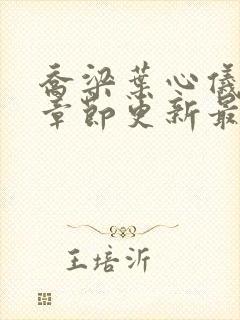 乔梁叶心仪
章节更新最
王培沂